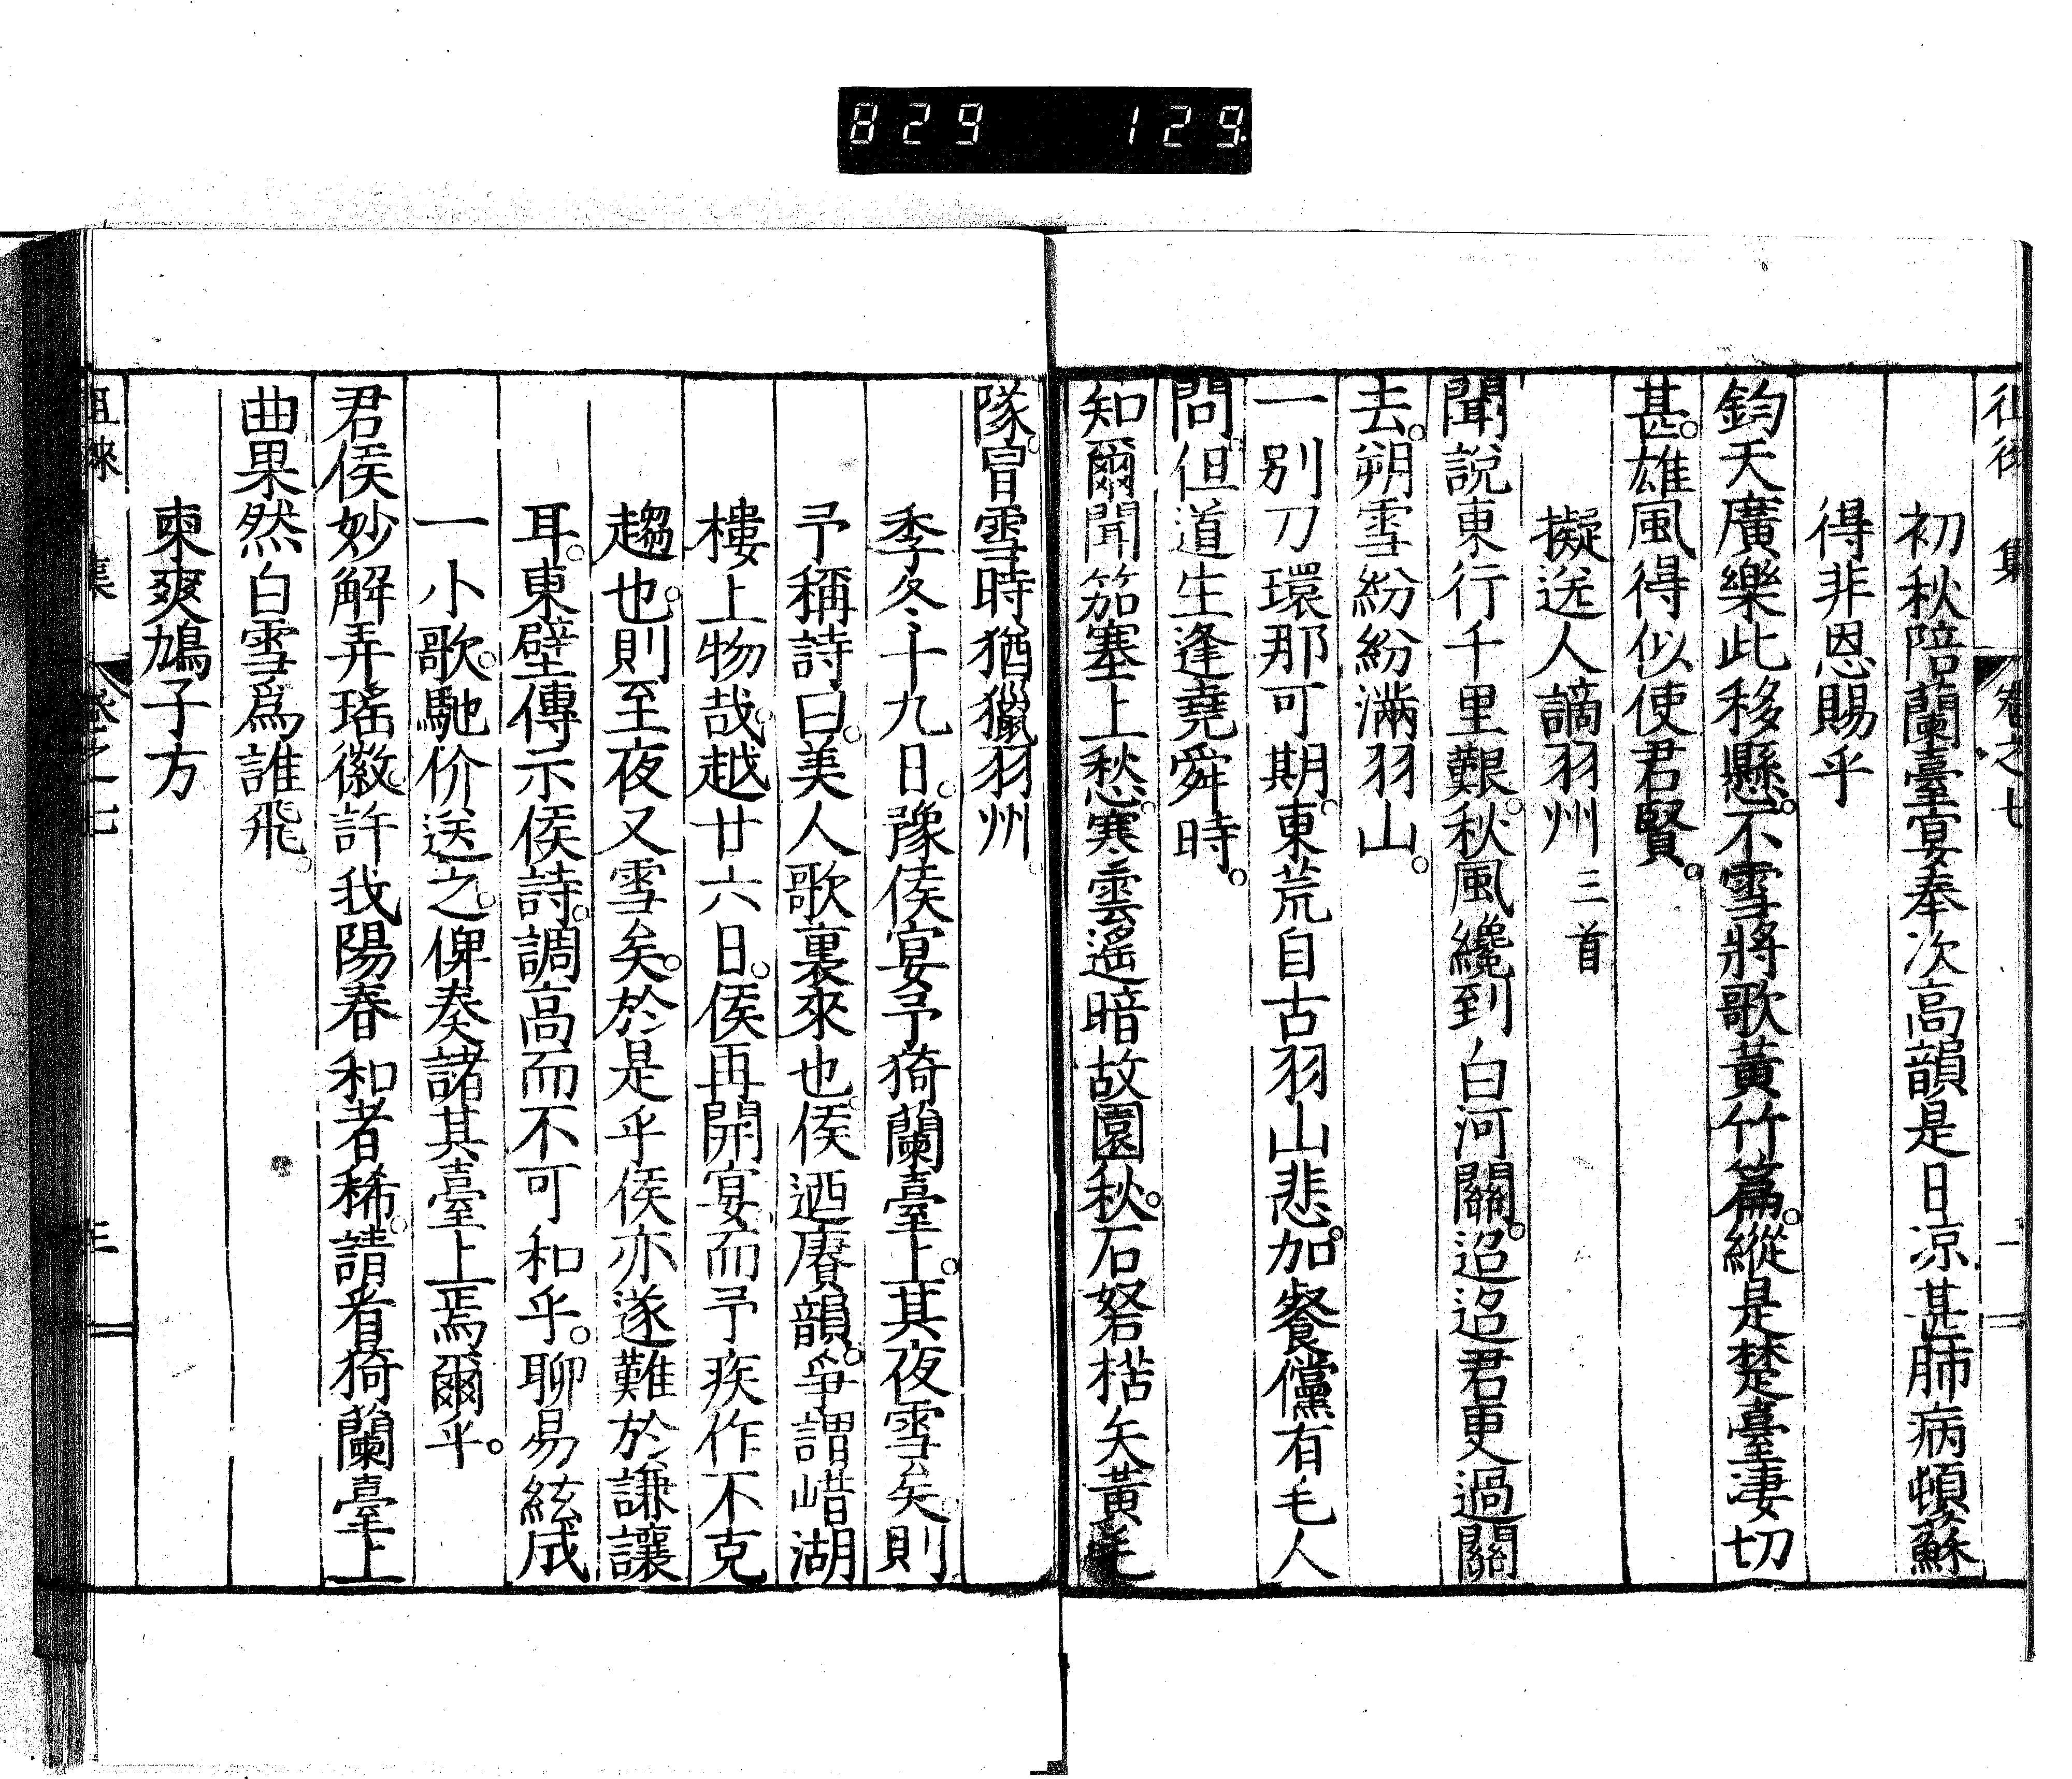 829 129
徂徠集 卷之七 二
初秋陪蘭臺宴奉次高韻是日凉甚肺病頓蘇
得非恩賜乎
鈞天廣樂此移懸。不雪將歌黃竹篇。縱是楚臺凄切
甚。雄風得似使君賢。
擬送人謫羽州三首
聞說東行千里艱。秋風纔到白河關。迢迢君更過關
去。朔雪紛紛滿羽山。
一別刀環那可期。東荒自古羽山悲。加餐儻有毛人
問。但道生逢堯舜時。
知爾聞笳塞上愁。寒雲遙暗故園秋。石砮楛矢黃毛
隊。冒雪時猶獵羽州。
季冬十九日。豫侯宴予猗蘭臺上。其夜雪矣。則
予稱詩曰。美人歌裏來也。侯迺賡韻。爭謂㟙湖
樓上物哉。越廿六日。侯再開宴。而予疾作不克
趨也。則至夜又雪矣。於是乎侯亦遂難於謙讓
耳。東壁傳示侯詩。調高而不可和乎。聊易絃成
一小歌。馳价送之。俾奏諸其臺上焉爾乎。
君侯妙解弄瑤徽。許我陽春和者稀。請看猗蘭臺上
曲。果然白雪爲誰飛。
柬爽鳩子方
徂徠集 卷之七 三